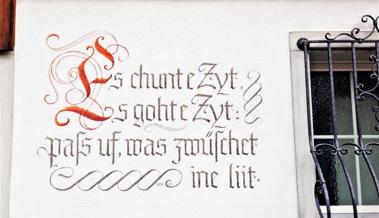 Es chunt e Zyt,
Es goht e Zyt:
pass uf, was zwüschet
ine liit.